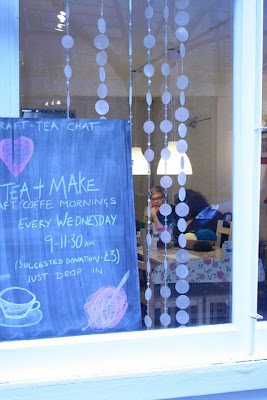 RAFT-TEA CHAT
TEA + MAKE
AFT COFFE MORNINGS
EVERY WEDNESDAY
9-11·30 am
(SUGGESTED DONATION £3)
JUST DROP IN